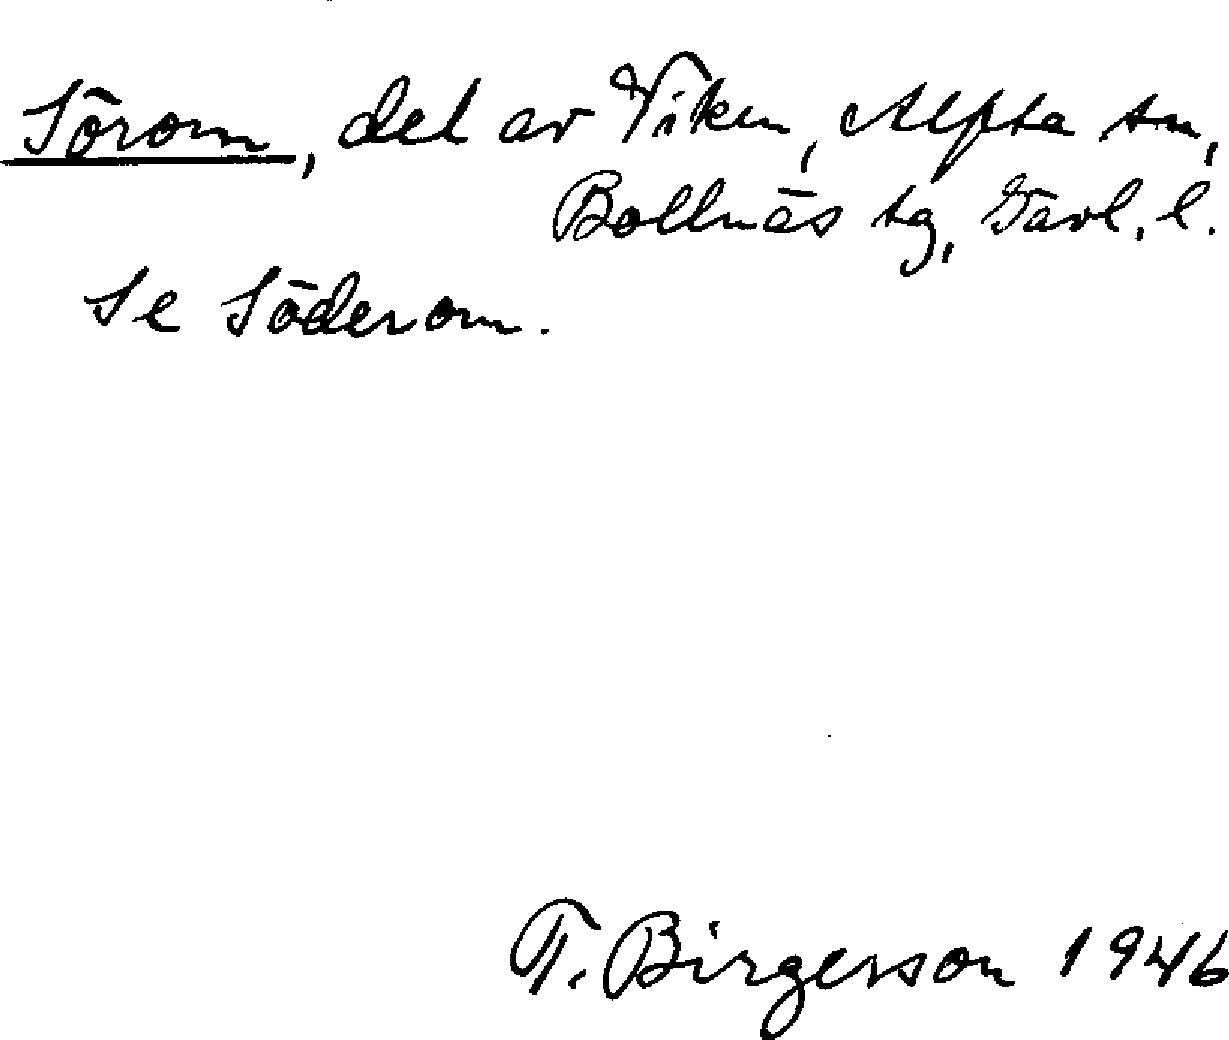 Sörom, del av Viken, Alfta sn,
Bollnäs tg, Gävl. l.
Se Söderom.
T. Birgerson 1946